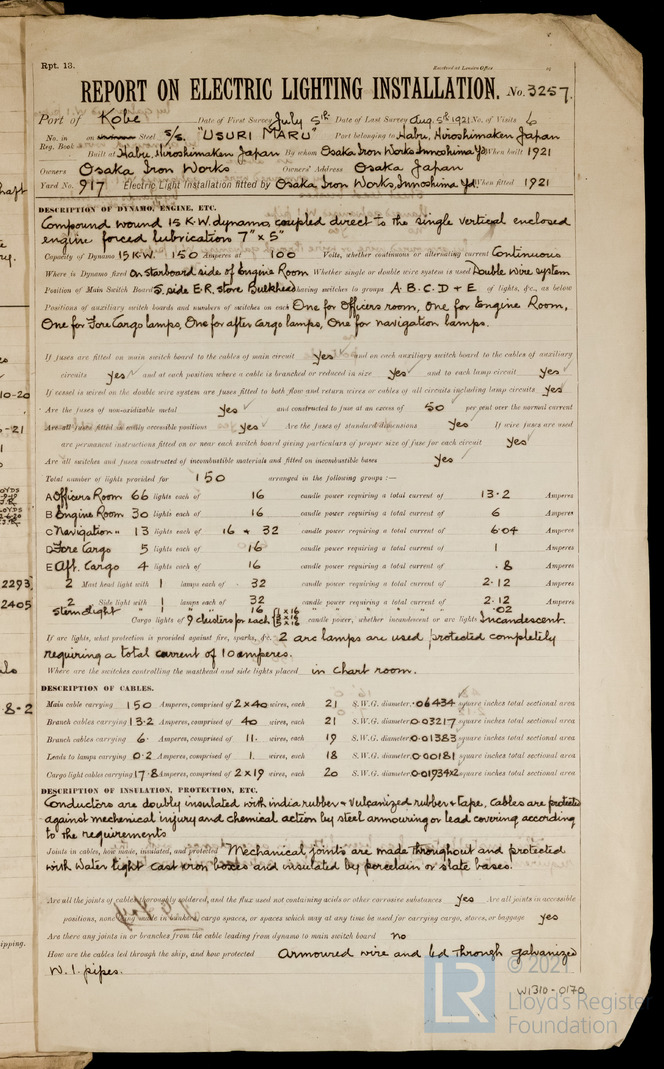 Rpt. 13.
Received at London Office
REPORT ON ELECTRIC LIGHTING INSTALLATION. No. 3257.
Port of Kobe Date of First Survey July 5th Date of Last Survey Aug. 5th 1921 No. of Visits 6
No. in Reg. Book on Steel S/S. "USURI MARU" Port belonging to Habu, Hiroshimaken Japan
Built at Habu, Hiroshimaken Japan By whom Osaka Iron Works Innoshima Yd. When built 1921
Owners Osaka Iron Works Owners' Address Osaka Japan
Yard No. 917 Electric Light Installation fitted by Osaka Iron Works, Innoshima Yd. When fitted 1921
DESCRIPTION OF DYNAMO, ENGINE, ETC.
Compound wound 15 K.W. dynamo, coupled direct to the single vertical enclosed
engine forced lubrication 7" x 5"
Capacity of Dynamo 15 K.W. 150 Amperes at 100 Volts, whether continuous or alternating current Continuous
Where is Dynamo fixed on starboard side of Engine Room Whether single or double wire system is used Double wire system
Position of Main Switch Board S. side E.R. store Bulkhead having switches to groups A. B. C. D + E of lights, &c., as below
Positions of auxiliary switch boards and numbers of switches on each One for Officers room, One for Engine Room,
One for Fore Cargo lamps, One for after Cargo lamps, One for navigation lamps.
If fuses are fitted on main switch board to the cables of main circuit yes and on each auxiliary switch board to the cables of auxiliary
circuits yes and at each position where a cable is branched or reduced in size yes and to each lamp circuit yes
If vessel is wired on the double wire system are fuses fitted to both flow and return wires or cables of all circuits including lamp circuits yes
Are the fuses of non-oxidizable metal yes and constructed to fuse at an excess of 50 per cent over the normal current
Are all fuses fitted in easily accessible positions yes Are the fuses of standard dimensions yes If wire fuses are used
are permanent instructions fitted on or near each switch board giving particulars of proper size of fuse for each circuit yes
Are all switches and fuses constructed of incombustible materials and fitted on incombustible bases yes
Total number of lights provided for 150 arranged in the following groups :—
A Officers Room 66 lights each of 16 candle power requiring a total current of 13.2 Amperes
B Engine Room 30 lights each of 16 candle power requiring a total current of 6 Amperes
C Navigation " 13 lights each of 16 + 32 candle power requiring a total current of 6.04 Amperes
D Fore Cargo 5 lights each of 16 candle power requiring a total current of 1 Amperes
E Aft. Cargo 4 lights each of 16 candle power requiring a total current of .8 Amperes
2 Mast head light with 1 lamps each of 32 candle power requiring a total current of 2.12 Amperes
2 Side light with 1 lamps each of 32 candle power requiring a total current of 2.12 Amperes
stern light " 1 " " 16 " " " " .02
Cargo lights of 9 clusters for each candle power, whether incandescent or arc lights Incandescent.
If arc lights, what protection is provided against fire, sparks, &c. 2 arc lamps are used protected completely
requiring a total current of 10 amperes.
Where are the switches controlling the masthead and side lights placed in Chart room.
DESCRIPTION OF CABLES.
Main cable carrying 150 Amperes, comprised of 2x40 wires, each 21 S.W.G. diameter, .06434 square inches total sectional area
Branch cables carrying 13.2 Amperes, comprised of 40 wires, each 21 S.W.G. diameter, 0.03217 square inches total sectional area
Branch cables carrying 6. Amperes, comprised of 11. wires, each 19 S.W.G. diameter, 0.01383 square inches total sectional area
Leads to lamps carrying 0.2 Amperes, comprised of 1. wires, each 18 S.W.G. diameter, 0.00181 square inches total sectional area
Cargo light cables carrying 17.8 Amperes, comprised of 2x19 wires, each 20 S.W.G. diameter, 0.01934x2 square inches total sectional area
DESCRIPTION OF INSULATION, PROTECTION, ETC.
Conductors are doubly insulated with india rubber + vulcanized rubber + tape, cables are protected
against mechanical injury and chemical action by steel armouring or lead covering according
to the requirements
Joints in cables, how made, insulated, and protected Mechanical joints are made throughout and protected
with Water tight cast iron boxes and insulated by porcelain or slate bases.
Are all the joints of cables thoroughly soldered, and the flux used not containing acids or other corrosive substances yes Are all joints in accessible
positions, none being made in bunkers, cargo spaces, or spaces which may at any time be used for carrying cargo, stores, or baggage yes
Are there any joints in or branches from the cable leading from dynamo to main switch board no
How are the cables led through the ship, and how protected Armoured wire and led through galvanized
W. I. pipes.
W1310-0170
© 2021
LR
Lloyd's Register
Foundation